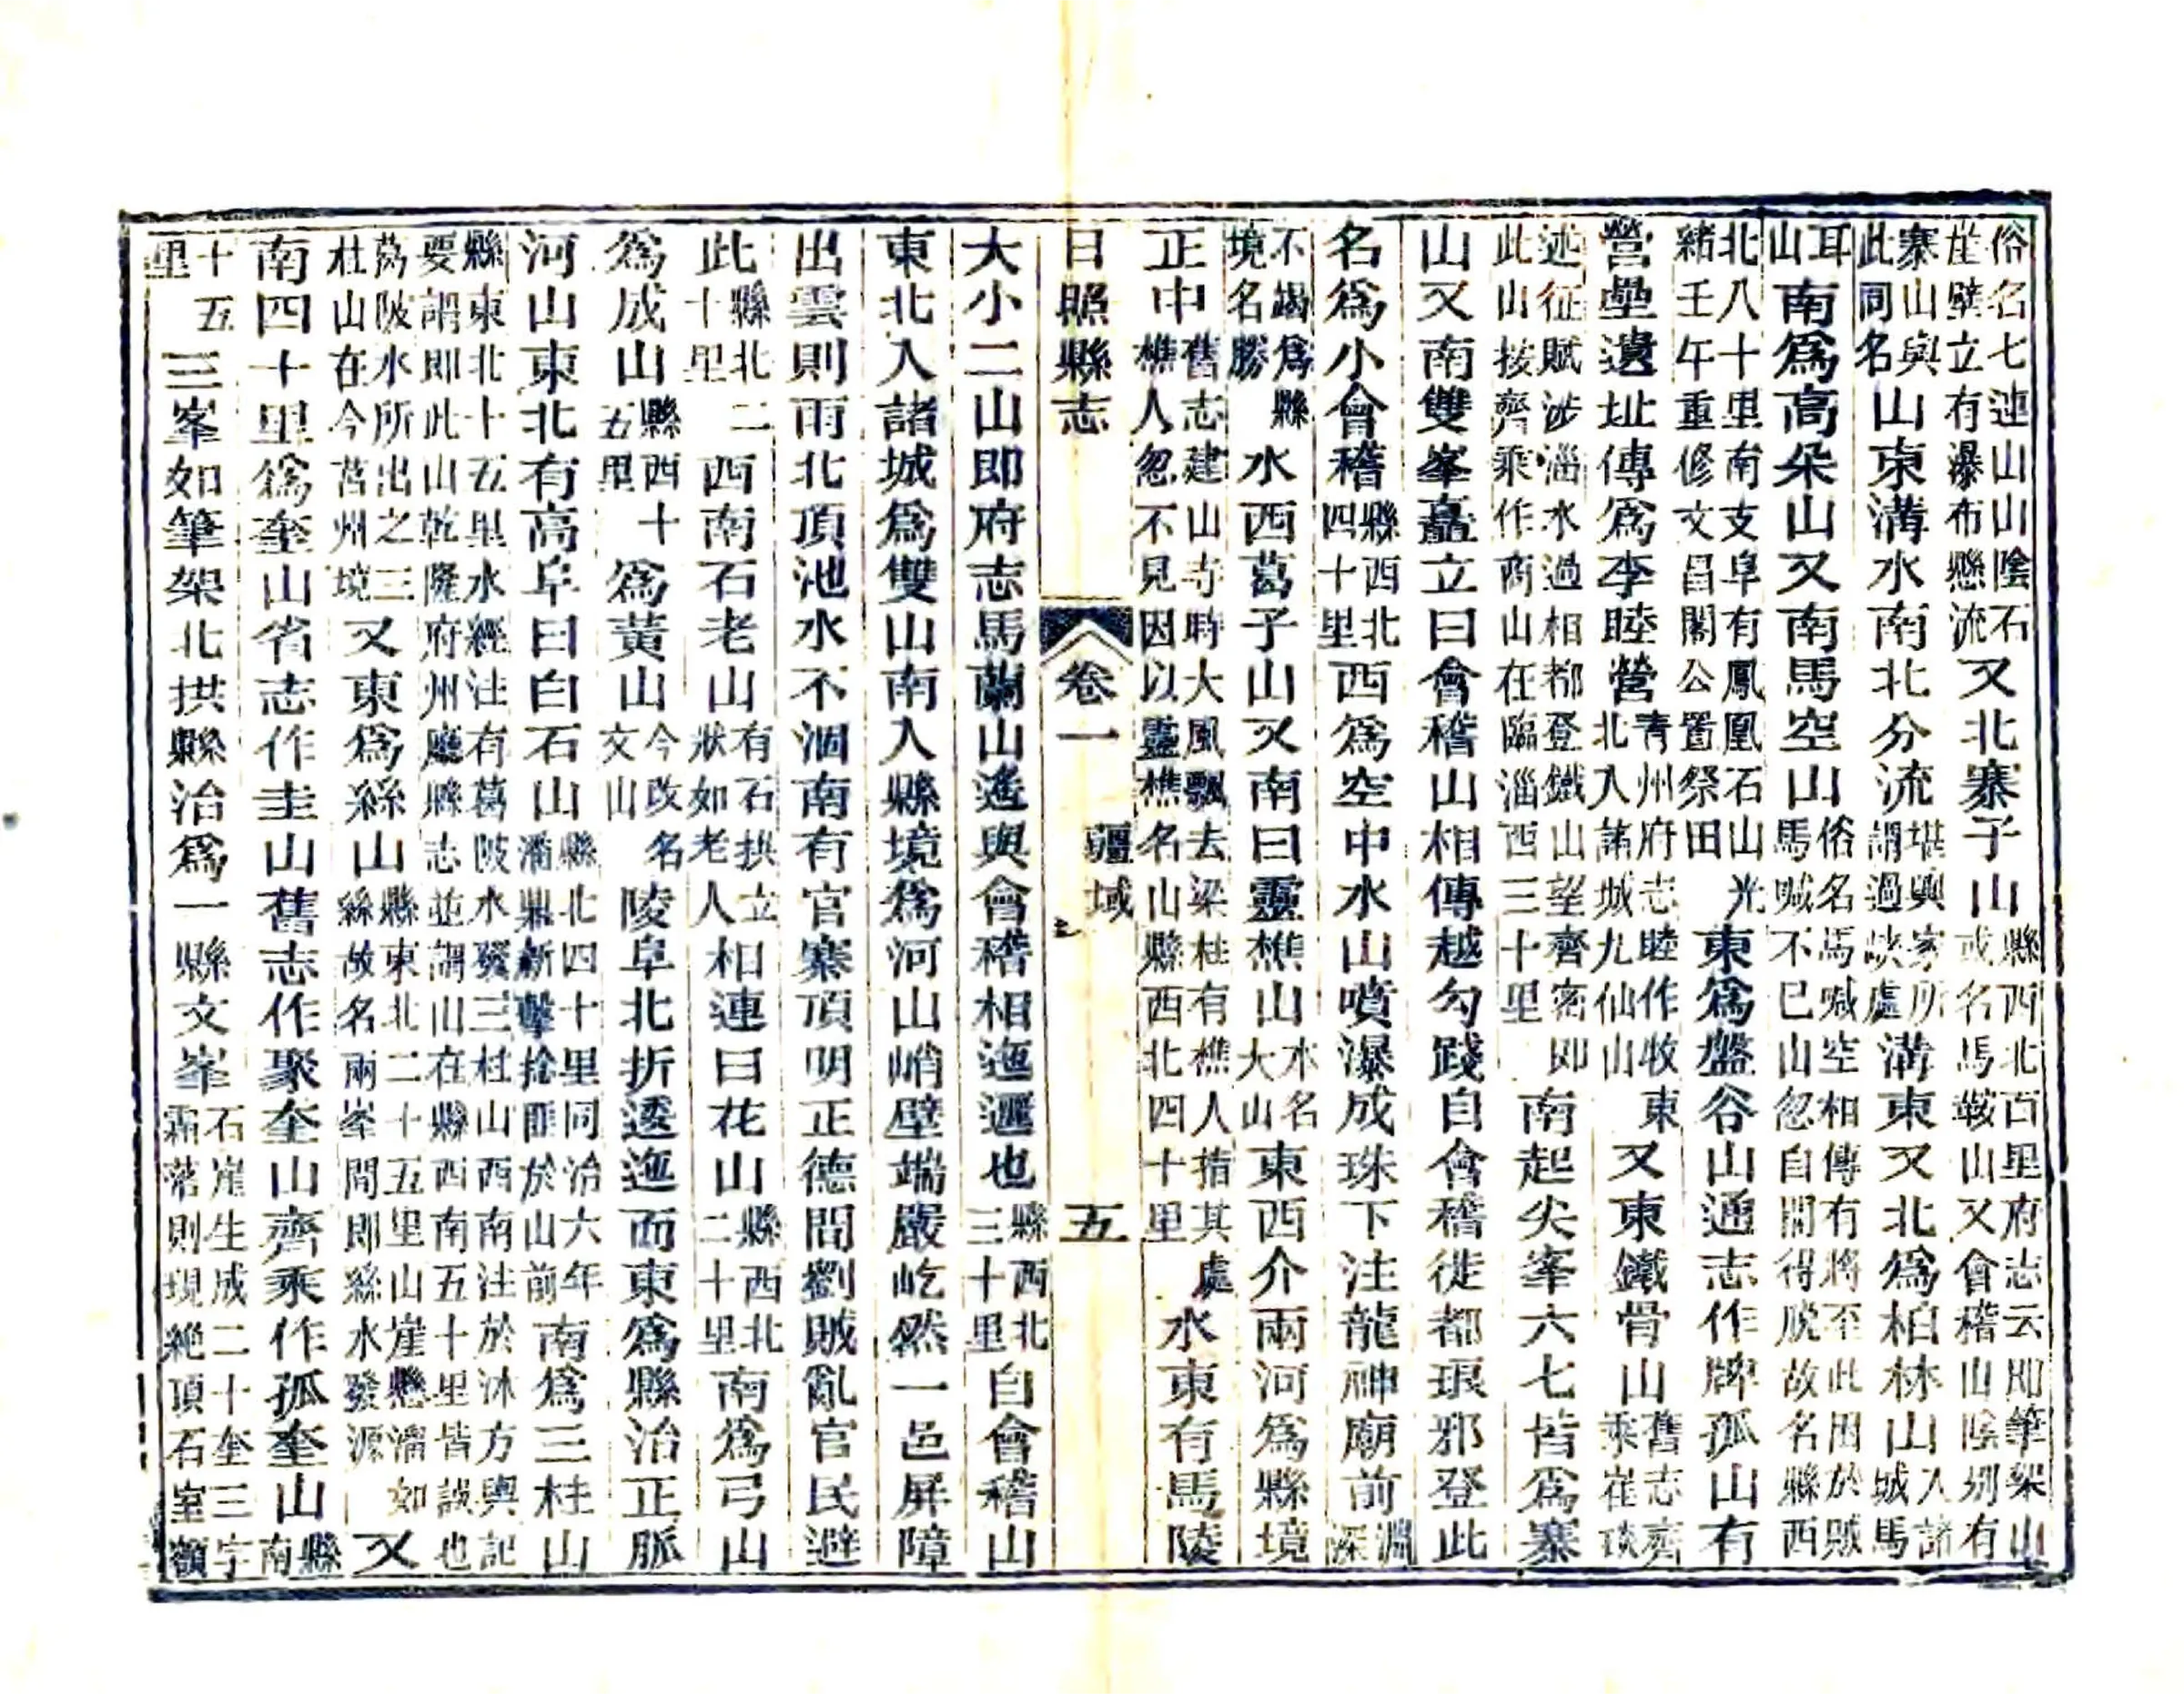 俗名七連山山陰石崖壁立有瀑布懸流又北寨子山縣西北百里府志云即筆架山或名馬鞍山又會稽山陰别有
寨山與此同名山東溝水南北分流堪輿家所謂過峽處溝東又北爲柏林山入諸城馬
耳山南爲高朵山又南馬空山俗名馬喊空相傳有將至此困於賊馬喊不已山忽自開得脫故名縣西
北八十里南支阜有鳳凰石山光緒壬午重修文昌閣公置祭田東爲盤谷山通志作牌孤山有
營壘遺址傳爲李睦營青州府志睦作牧東北入諸城九仙山又東鐵骨山舊志齊乘崔琰
述征賦涉淄水過相都登鐵山望齊密即此山按齊乘作商山在臨淄西三十里南起尖峯六七皆爲寨
山又南雙峯矗立曰會稽山相傳越勾踐自會稽徙都琅邪登此
名爲小會稽縣西北四十里西爲空中水山噴瀑成珠下注龍神廟前淵深
不竭爲縣境名勝水西葛子山又南曰靈樵山木名大山東西介兩河爲縣境
正中舊志建山寺時大風飄去梁柱有樵人指其處樵人忽不見因以靈樵名山縣西北四十里水東有馬陵
日照縣志 卷一 疆域 五
大小二山即府志馬蘭山遙與會稽相迤邐也縣西北三十里自會稽山
東北入諸城爲雙山南入縣境爲河山峭壁端嚴屹然一邑屏障
出雲則雨北頂池水不涸南有官寨頂明正德間劉賊亂官民避
此縣北二十里西南石老山有石拱立狀如老人相連曰花山縣西北二十里南爲弓山
爲成山縣西十五里爲黃山今改名文山陵阜北折逶迤而東爲縣治正脈
河山東北有高阜曰白石山縣北四十里同治六年潘鼎新擊捻匪於山前南爲三柱山
縣東北十五里水經注有葛陂水發三柱山西南注於沭方輿記要謂即此山乾隆府州廳縣志並謂山在縣西南五十里皆誤也
葛陂水所出之三杜山在今莒州境又東爲絲山縣東北二十五里山崖懸溜如絲故名兩峯間即絲水發源又
南四十里爲奎山省志作圭山舊志作聚奎山齊乘作孤奎山縣南
十五里三峯如筆架北拱縣治爲一縣文峯石崖生成二十奎三字霜落則現絕頂石室額